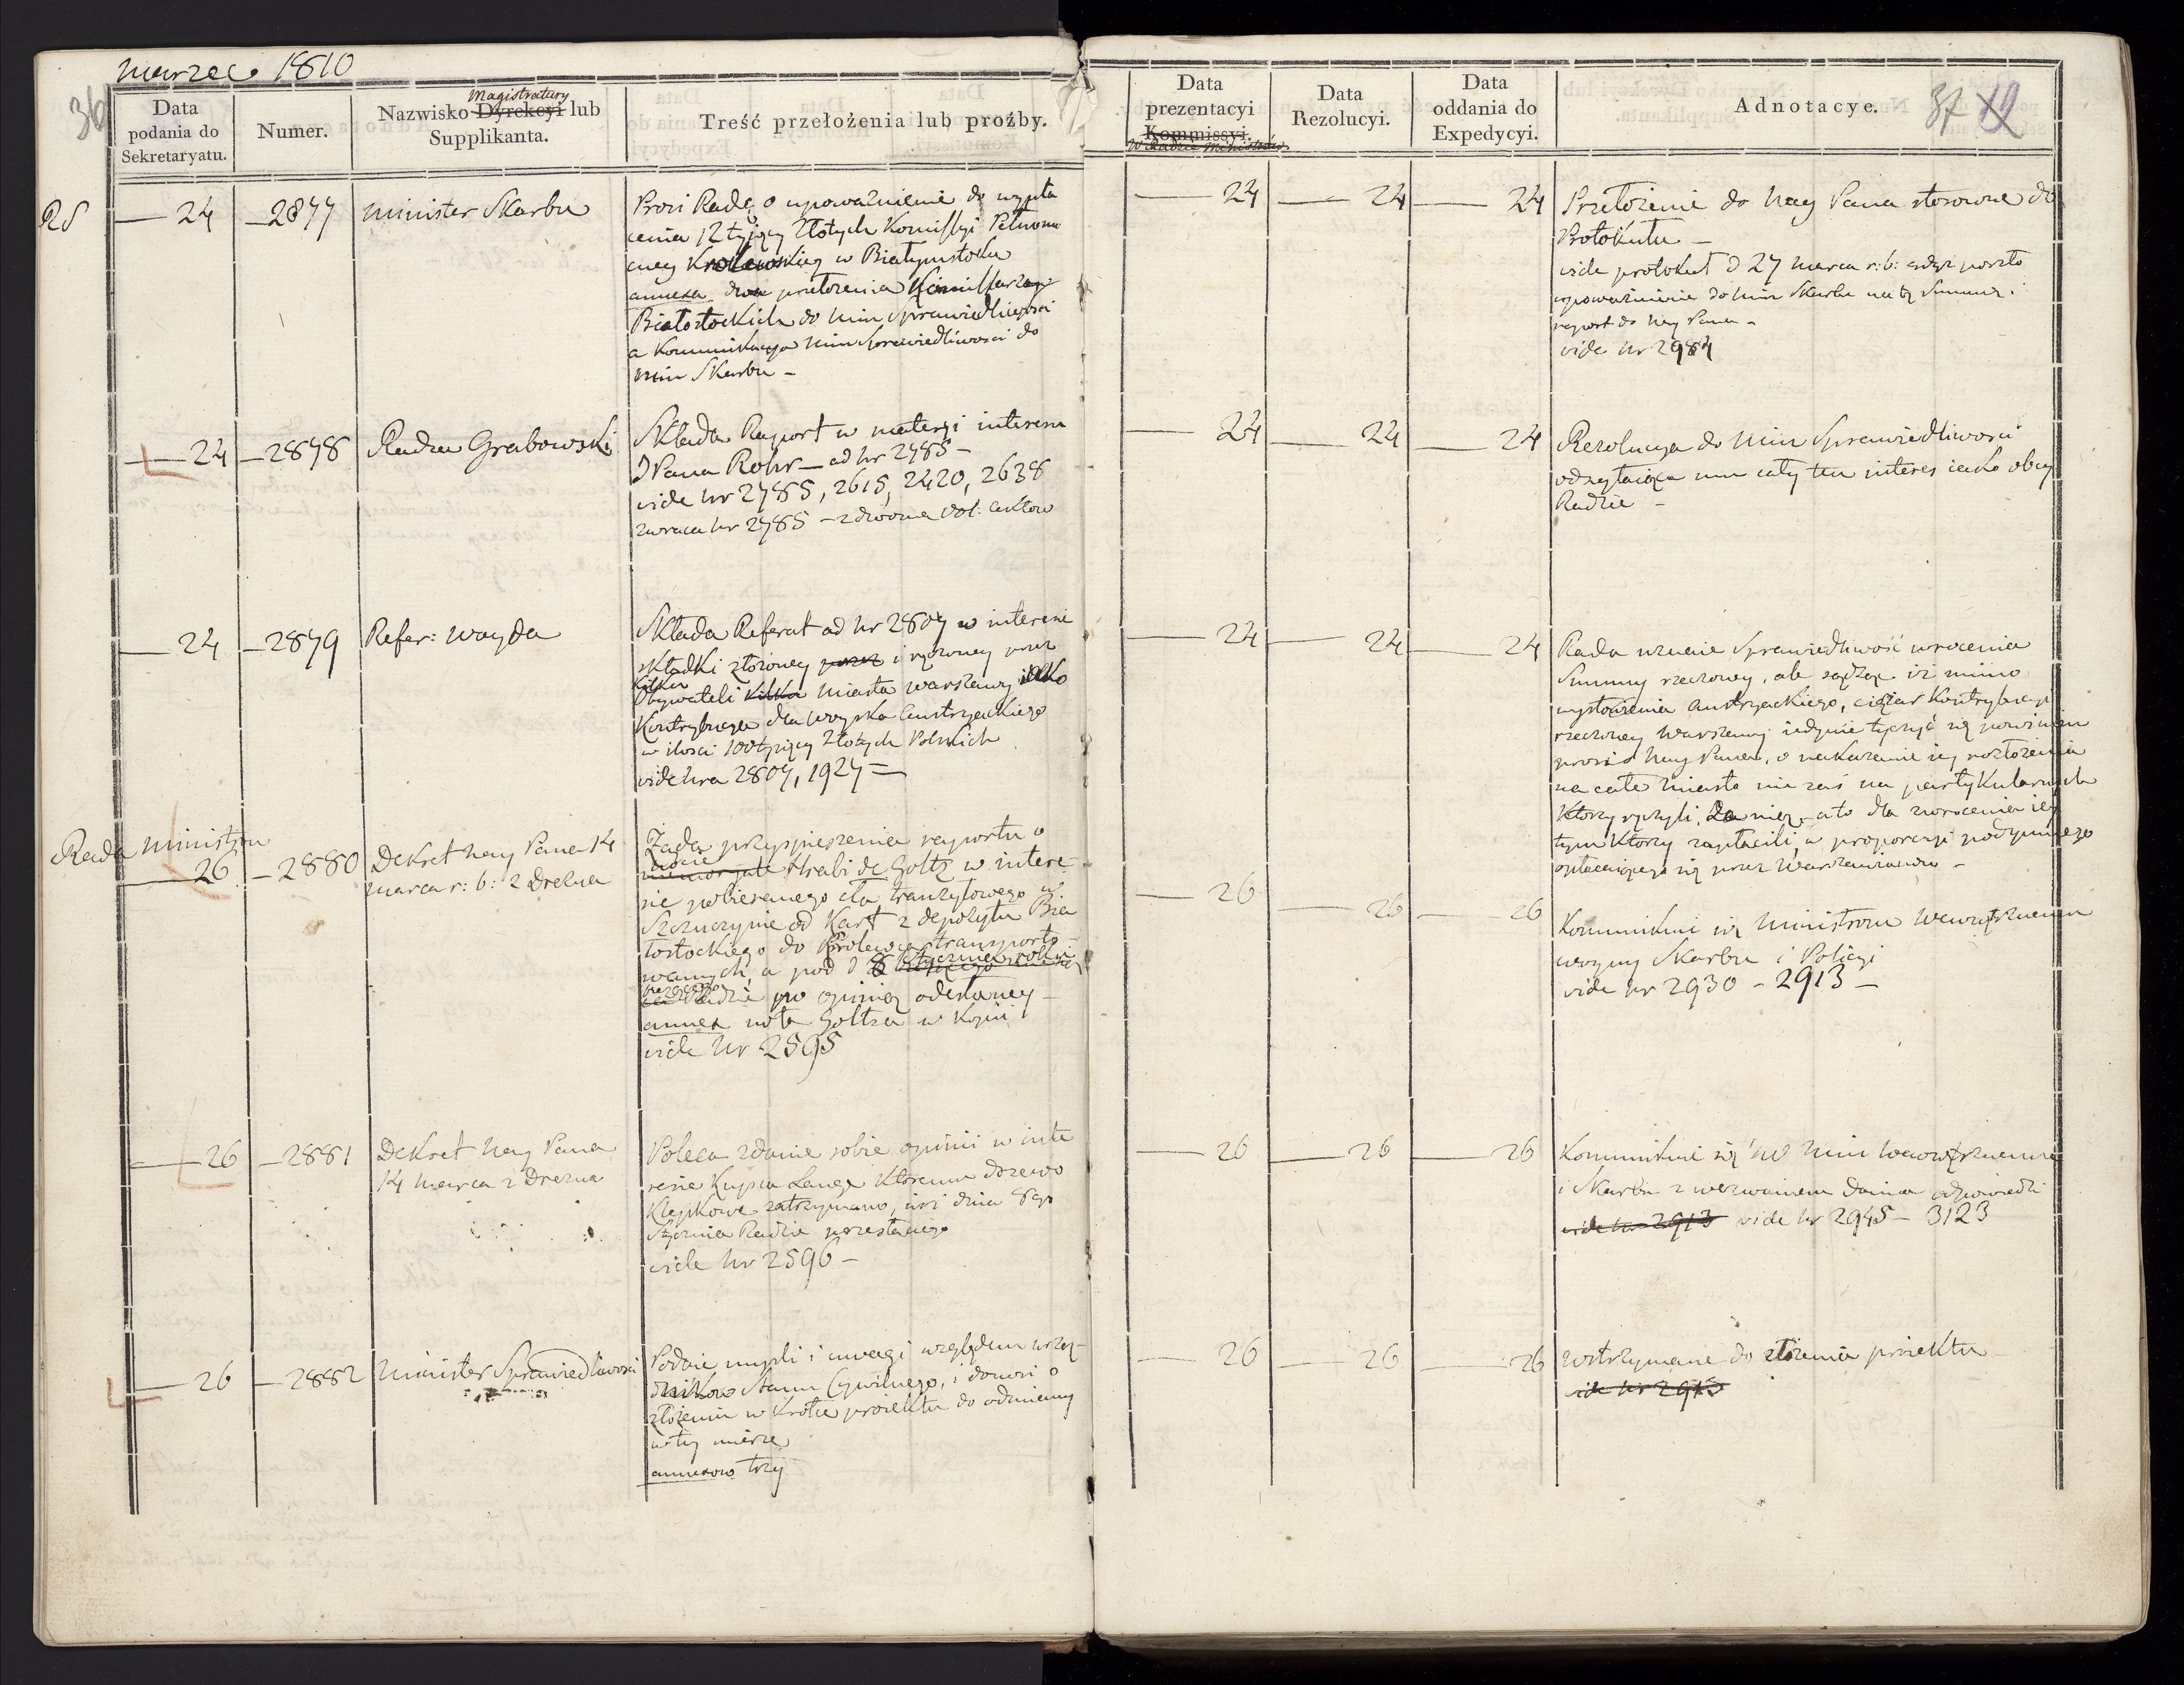 marzec 1810
36
Data podania do Sekretaryatu.
Numer.
Nazwisko Dyrekcyi Magistratury lub Supplikanta.
Treść przełożenia lub proźby.
Data prezentacyi Kommissyi. w Radzie Ministrów
Data Rezolucyi.
Data oddania do Expedycyi.
Adnotacye.
37
RS
— 24
— 2877
Minister Skarbu
Prosi Radę o upoważnienie do wypła
cenia 12 tysięcy Złotych Komissyi Pełnomo
cney w Białymstoku
annexa dwa przełożenia Kommissarzy
Białostockich do Min Sprawiedliwości
a Kommunikacya Min Sprawiedliwosci do
Min Skarbu —
— 24
— 24
— 24
Przełożenie do Nay Pana stosowne do
Protokułu —
vide protokuł d 27 marca r: b: gdyż poszło
upoważnienie do Min Skarbu na tę Summę i
raport do Nay Pana —
vide nr 2984
— 24
— 2878
Radca Grabowski
Składa Raport w materyi interesu
JPana Rohr — ad nr 2785 —
vide nr 2785, 2615, 2420, 2638
zwraca nr 2785 — z dwoma vol: aktow
— 24
— 24
— 24
Rezolucya do Min Sprawiedliwości
odsyłaiąca mu cały ten interes iako obcy
Radzie —
— 24
— 2879
Refer: Wayda
Składa Referat ad nr 2807 w interesie
składki złożoney przez i rządowney przez
kilku
Obywateli kilka miasta Warszawy iako
Kontrybucya dla woyska Austryackiego
w ilości 100 tysięcy Złotych Polskich
vide nra 2807, 1927 —
— 24
— 24
— 24
Rada uznaie Sprawiedliwość wrocenia
Summy rzeczoney, ale sądząc iż mimo
Austryackiego, ciężar Kontrybucyi
rzeczoney Warszawy iedynie tyczyć się powinien
prosi Nay Pana, o nakazanie iey rozłożenia
na całe Miasto nie zaś na partykularnych
Ktorzy ręczyli za nią, a to dla zwrocenia iey
tym Ktorzy zapłacili, w proporcyi podymnego
opłacaiącego się przez Warszawianow —
Rada Ministrow
— 26
— 2880
Dekret Nay Pana 14
marca r: b: z Drezna
Żąda przyspieszenia raportu o
nocie
memoryale Hrabi de Goltz w intere-
sie pobieranego cła tranzytowego w
Szczuczynie od Kart z depozytu Bia
łostockiego do Krolewca transporto-
wanych, a pod d 8 stycznia roku
bieżącego
Radzie po opinię odesłaney —
annex nota Goltza w Kopii
vide Nr 2595
— 26
— 26
— 26
Kommunikuie się Ministrom Wewnętrznemu
Woyny Skarbu i Policyi
vide nr 2930 — 2913 —
— 26
— 2881
Dekret Nay Pana
14 marca z Drezna
Poleca zdanie sobie opinii w inte
resie Kupca Lange Ktoremu drzewo
Klepkowe zatrzymano, iuż dnia 8go
Stycznia Radzie przesłanego
vide nr 2596 —
— 26
— 26
— 26
Kommunikuie się Min Wewnętrznemu
i Skarbu z wezwaniem dania odpowiedzi
vide nr 2913 vide nr 2945 — 3123
— 26
— 2882
Minister Sprawiedliwości
Podaie myśli i uwagi względem urzę-
dnikow Stanu Cywilnego, i donosi o
złożeniu w Krotce proiektu do odmiany
w tey mierze
annexow trzy
— 26
— 26
— 26
Wstrzymane do złożenia proiektu
vide nr 2913